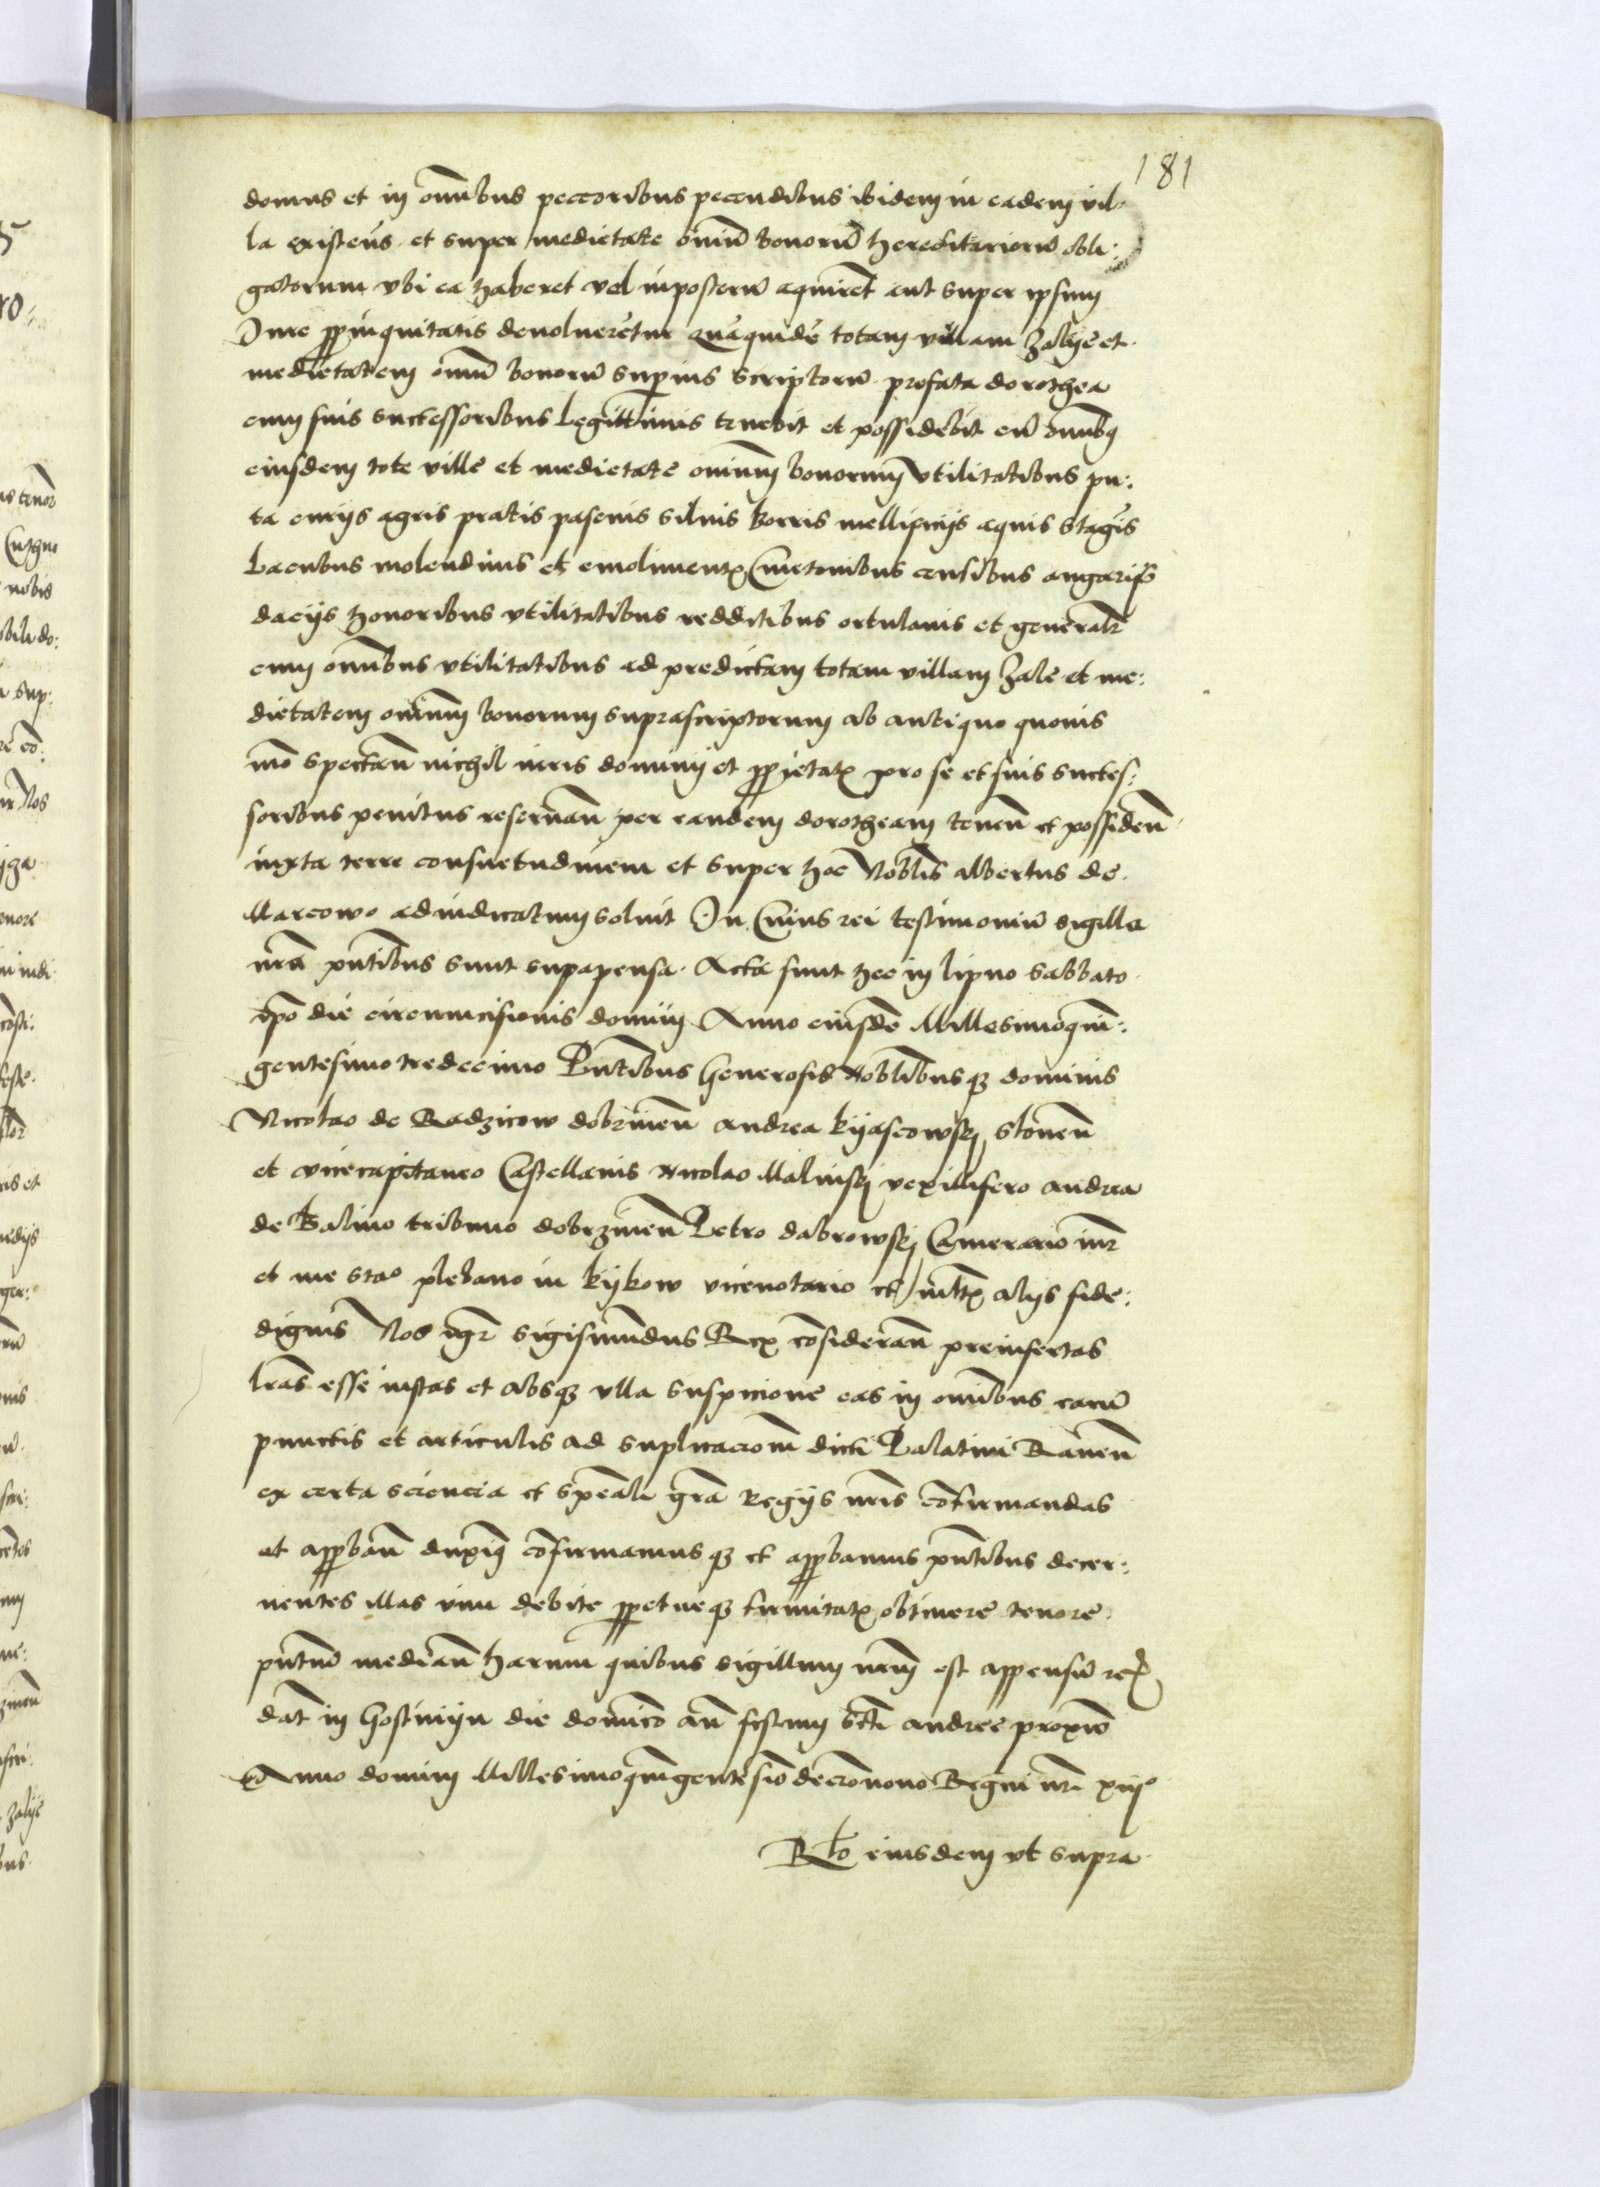 181
domus et in omnibus peccoribus pecudibus ibidem in eadem vil-
la existen̄s et super medietate om̄iū bonorū hereditariorū obli:
gatorum vbi ea haberet vel inposterū aquiret̄ aut super ipsum
Jure ppinquitatis devoluerētur Quāquidē totam villam Zalye et
medietatem om̄iū bonorū superius scriptorū prefata dorothea
cum suis successoribus legittimis tenebit et possidebit cū om̄ibꝫ
eiusdem tote ville et medietate om̄ium bonorum vtilitatibus pu:
ta curijs agris pratis pascuis siluis borris mellificijs aquis stagn̄is
lacubus molendinis et emolimentꝭ Cmetonibus censibus angarijs
dacijs honoribus vtilitatibus redditibus ortulanis et generalr̄
cum om̄ibus vtilitatibus ad predictam totam villam Zale et me:
dietatem om̄ium bonorum suprascriptorum ab antiquo quouis
mō spectan̄ nichil iuris dominij et pprietatꝭ pro se et suis succes:
soribus penitus reseruan̄ per eandem dorotheam tenen̄ et possiden̄
iuxta terre consuetudinem et super hoc Nobl̄is albertus de
Marcowo adiudicatum soluit In Cuius rei testimoniū sigilla
nr̄a pn̄tibus sunt supapensa Acta sunt hec in lipno Sabbato
ip̄o die circumcisionis domini Anno eiusdē Millesimoquin:
gentesimotredecimo Pn̄tibus Generosis Nobl̄ibusqꝫ dominis
Nicolao de Radzicow dobrinen̄ andrea kijascowskj slonen̄
et vicecapitaneo Castellanis Nicolao Malinskj vexillifero andrea
de Balino tribuno dobrzinen̄ Petro dabrowskj Camerario
et me sta⁰ plebano in kijkow vicenotario et ml̄tꝭ alijs fide:
dignis Nos igr̄ Sigismundus Rex cōsideran̄ preinsertas
lr̄as esse iustas et absqꝫ vlla suspicione eas in om̄ibus earū
punctis et articulis ad suplicacionē dicti Palatini Rauen̄
ex certa sciencia et spēali grā Regijs nr̄is cōfirmandas
et appban̄ duximꝰ cōfirmamusqꝫ et appbamus pn̄tibus decer:
nentes illas vim debite ppetueqꝫ firmitatꝭ obtinere tenore
pn̄tiū median̄ harum quibus sigillum nr̄m est appensū rēꝭ
dat̄ in Gostinijn die dom̄ico an̄ festum sct̄i andree proxīo
Anno domini Millesimoquingentesīo decīonono Regni nr̄i xiijº
Rlō eiusdem vt supra